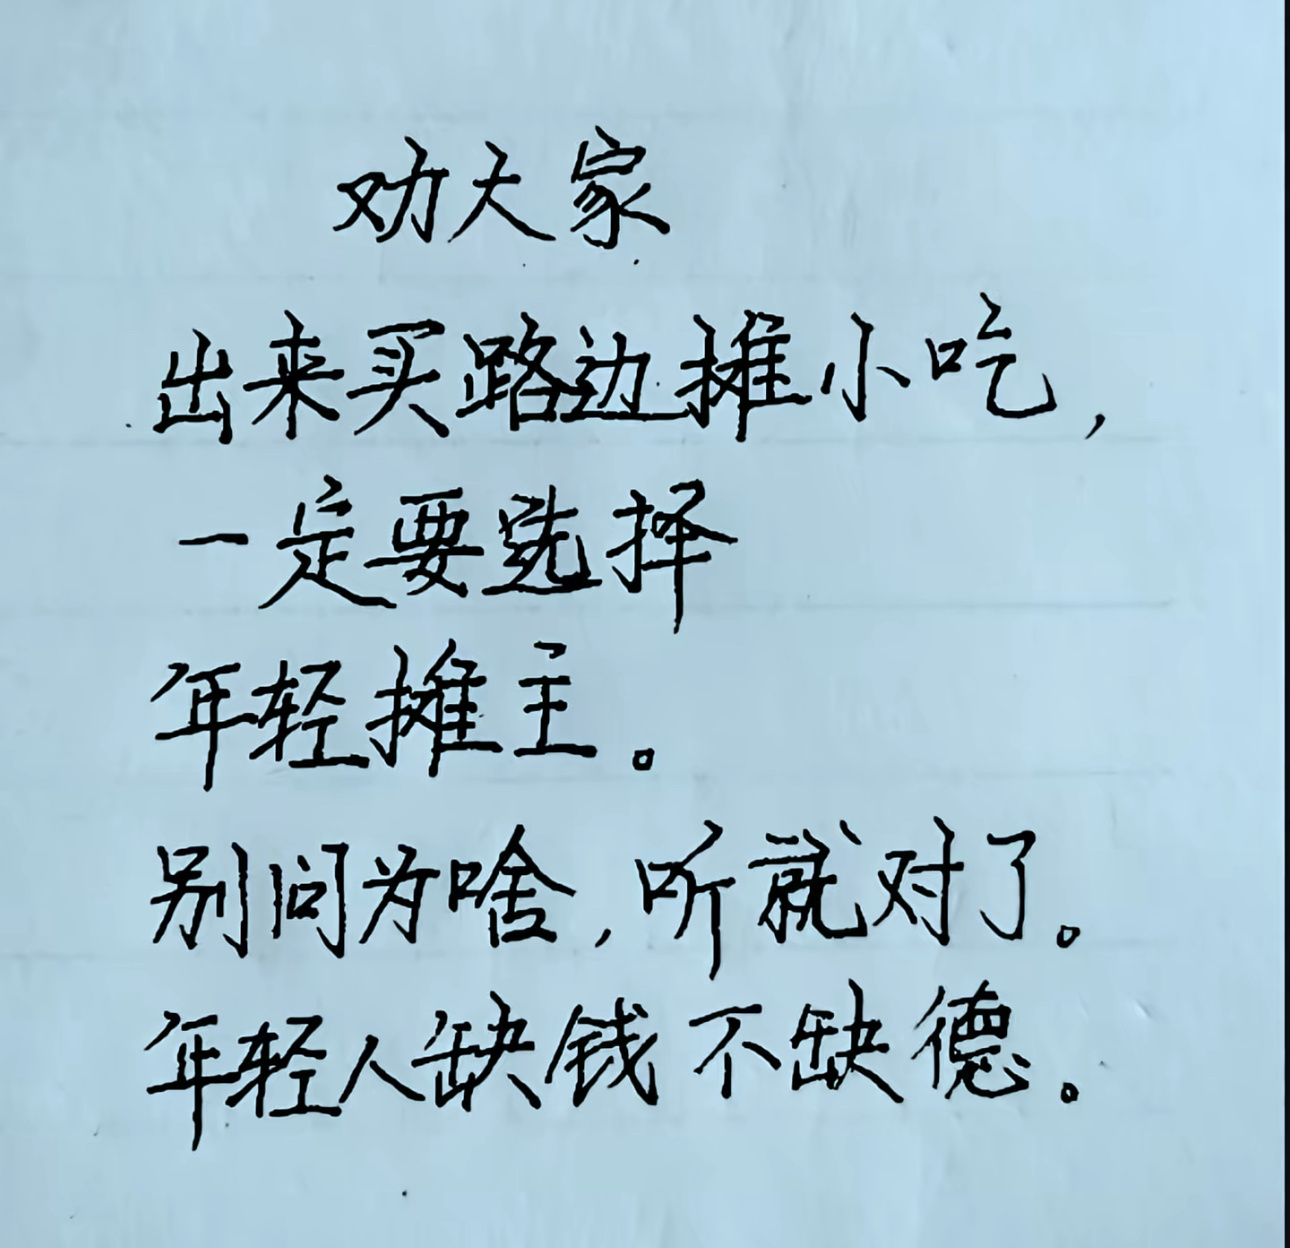 劝大家
出来买路边摊小吃，
一定要选择
年轻摊主。
别问为啥，听就对了。
年轻人缺钱不缺德。